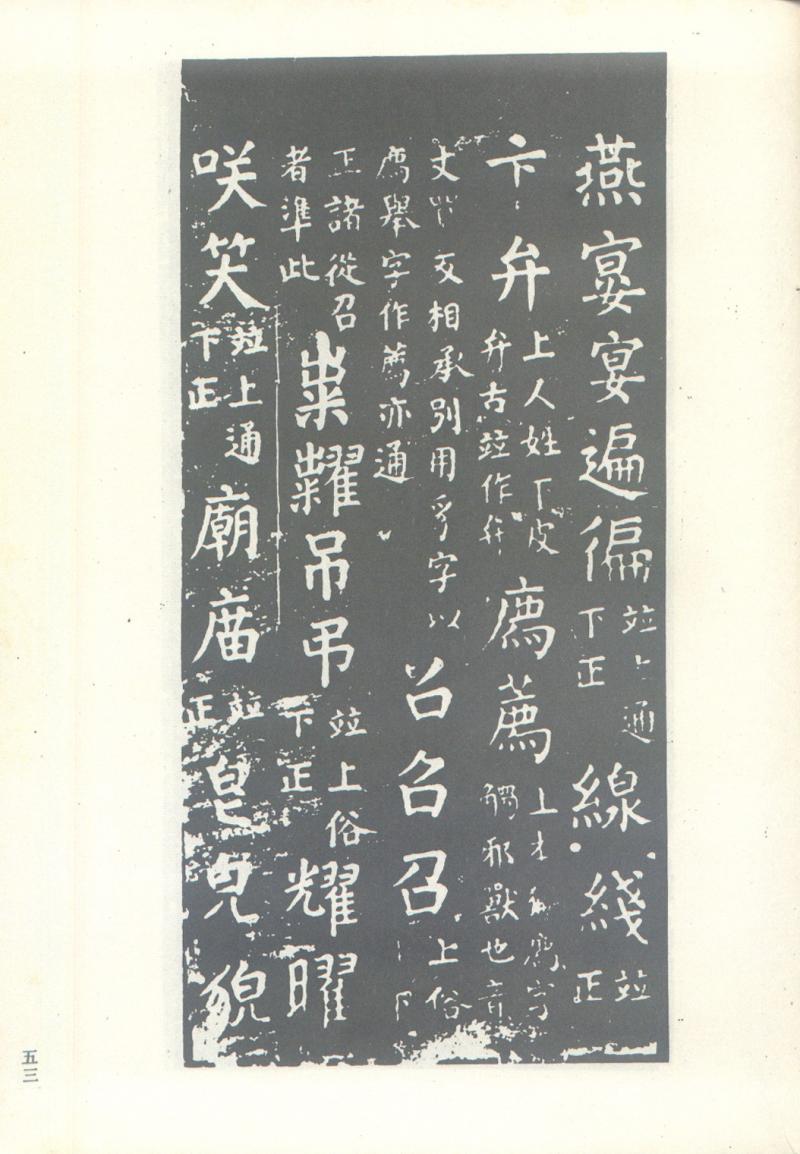 燕宴宴遍徧並上通下正線綫並正
卞弁上人姓下皮弁古並作弁廌薦上廌字觸邪獸也音
丈反相承別用豸字以廌舉字作薦亦通召召上俗
正諸從召者準此粜糶吊弔並上俗下正耀曜
咲笑並上通下正廟庿並正皃皃貌
五三